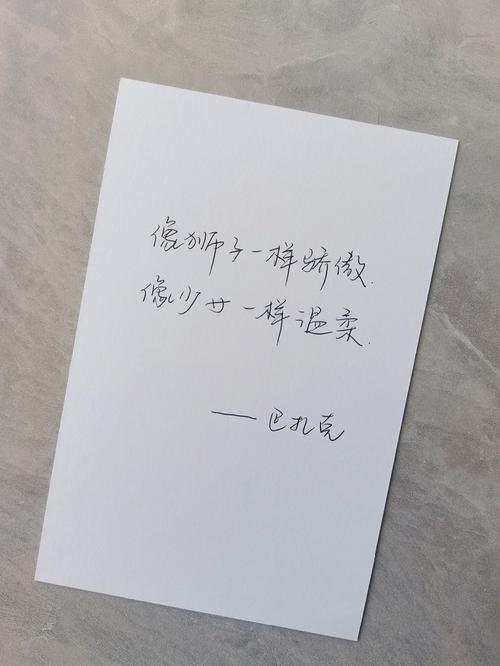 像狮子一样骄傲.
像少女一样温柔.
——巴扎克